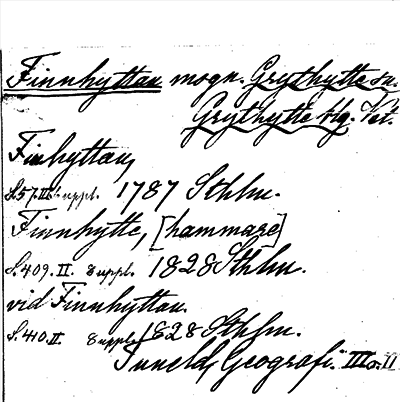 Finnhyttan mogn. Grythytte sn.
Grythytte bg. Vst.
Finhyttan,
S. 57. III. suppl. 1787 Sthlm.
Finnhytte, [hammare]
S. 409. II. suppl. 1828 Sthlm.
vid Finnhyttan.
S. 410. II. suppl. 1828 Sthlm.
Tuneld, Geografi. III o. II